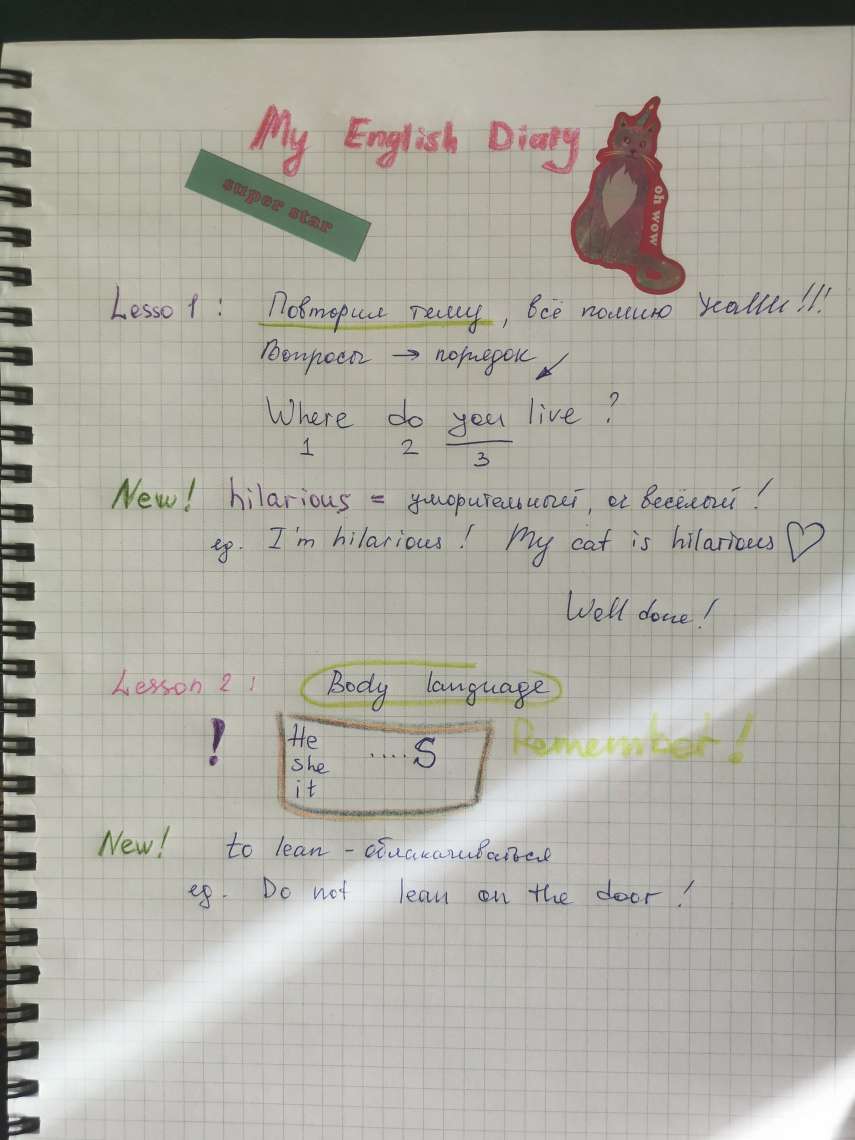 My English Diary
super star
oh wow
Lesso 1 : Повторил тему, всё помню !!!
Вопросы → порядок
Where do you live ?
1 2 3
New! hilarious = уморительный, оч весёлый !
eg. I'm hilarious ! My cat is hilarious ♡
Well done !
Lesson 2 : Body language
! He
she .... S Remember !
it
New! to lean - облакачиваться
eg. Do not lean on the door !